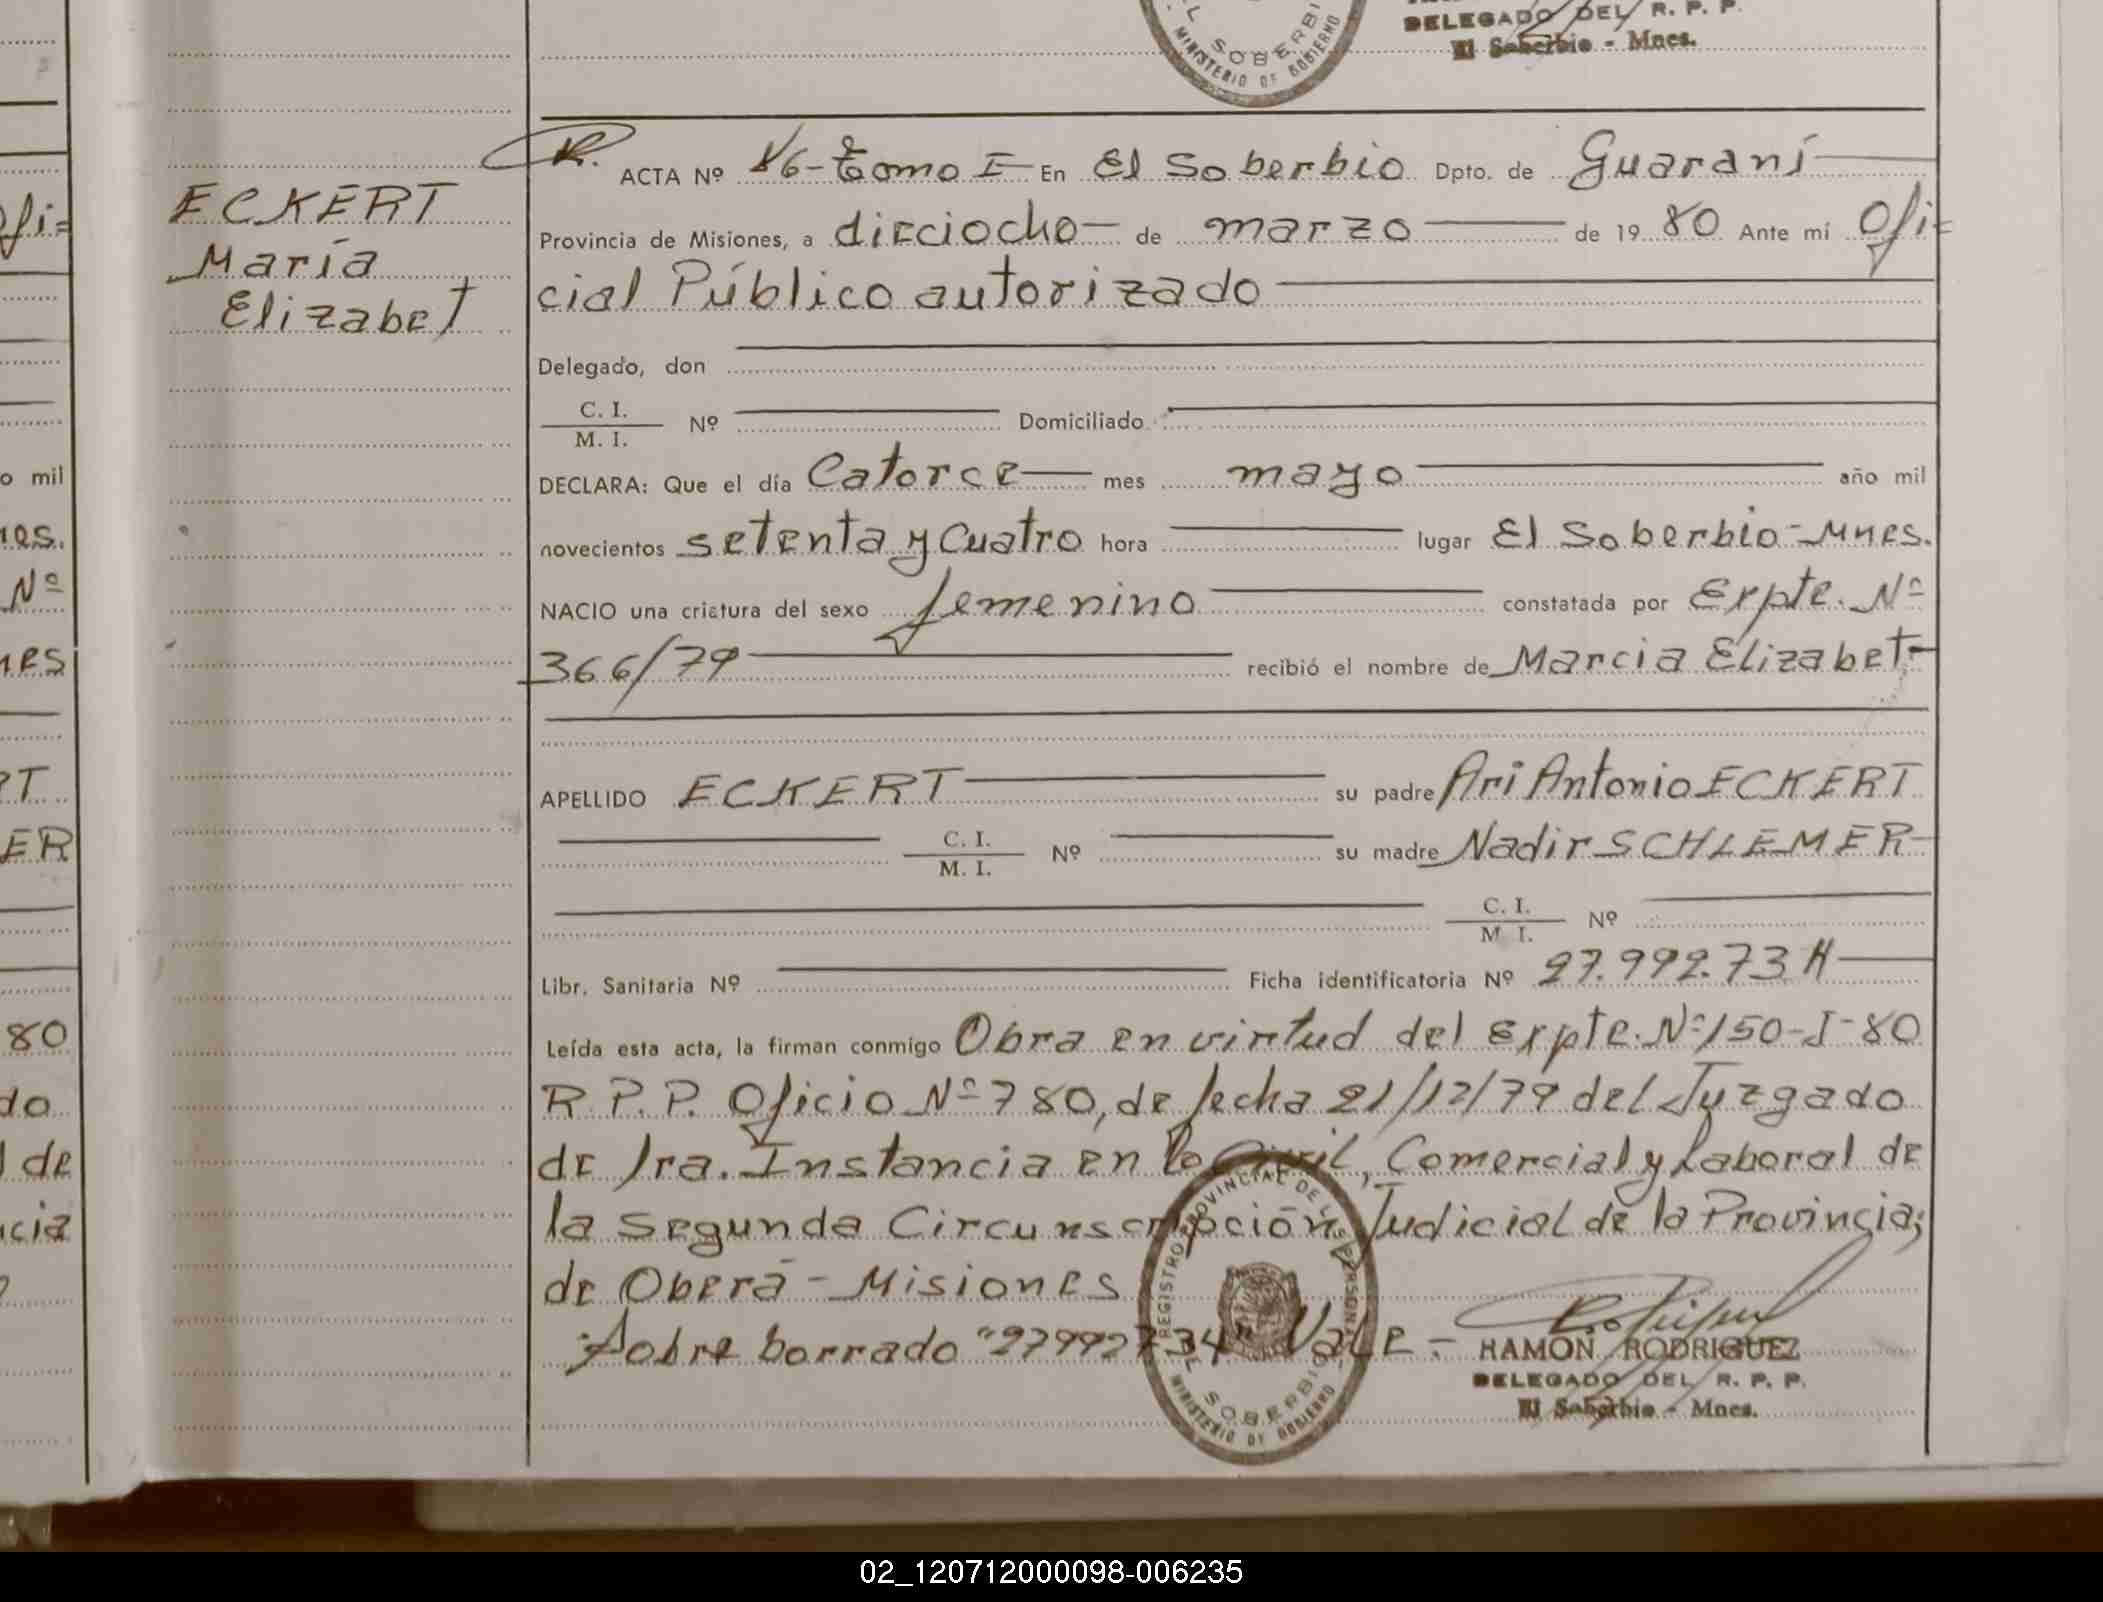 DELEGADO DEL R. P. P.
El Soberbio - Mnes.
EL SOBERBIO
MINISTERIO DE GOBIERNO
ECKERT
María
Elizabet
R. ACTA Nº 86-tomo I En El Soberbio Dpto. de Guaraní
Provincia de Misiones, a dieciocho de marzo de 1980 Ante mí Ofi=
cial Público autorizado
Delegado, don
C. I.
M. I.
Nº Domiciliado
DECLARA: Que el día Catorce mes mayo año mil
novecientos setenta y cuatro hora lugar El Soberbio-Mnes.
NACIO una criatura del sexo femenino constatada por Expte. Nº
366/79 recibió el nombre de Marcia Elizabet-
APELLIDO ECKERT su padre Ari Antonio ECKERT
C. I.
M. I.
Nº su madre Nadir SCHLEMER-
C. I.
M. I.
Nº
Libr. Sanitaria Nº Ficha identificatoria Nº 27.992.734
Leída esta acta, la firman conmigo Obra en virtud del Expte. Nº 150-I-80
R.P.P. Oficio Nº 780, de fecha 21/12/79 del Juzgado
de 1ra. Instancia en lo Civil, Comercial y Laboral de
la Segunda Circunscripción Judicial de la Provincia,
de Oberá-Misiones
Sobre borrado "27992734" Vale.-
REGISTRO PROVINCIAL DE LAS PERSONAS
EL SOBERBIO
MINISTERIO DE GOBIERNO
RAMON RODRIGUEZ
DELEGADO DEL R. P. P.
El Soberbio - Mnes.
02_120712000098-006235